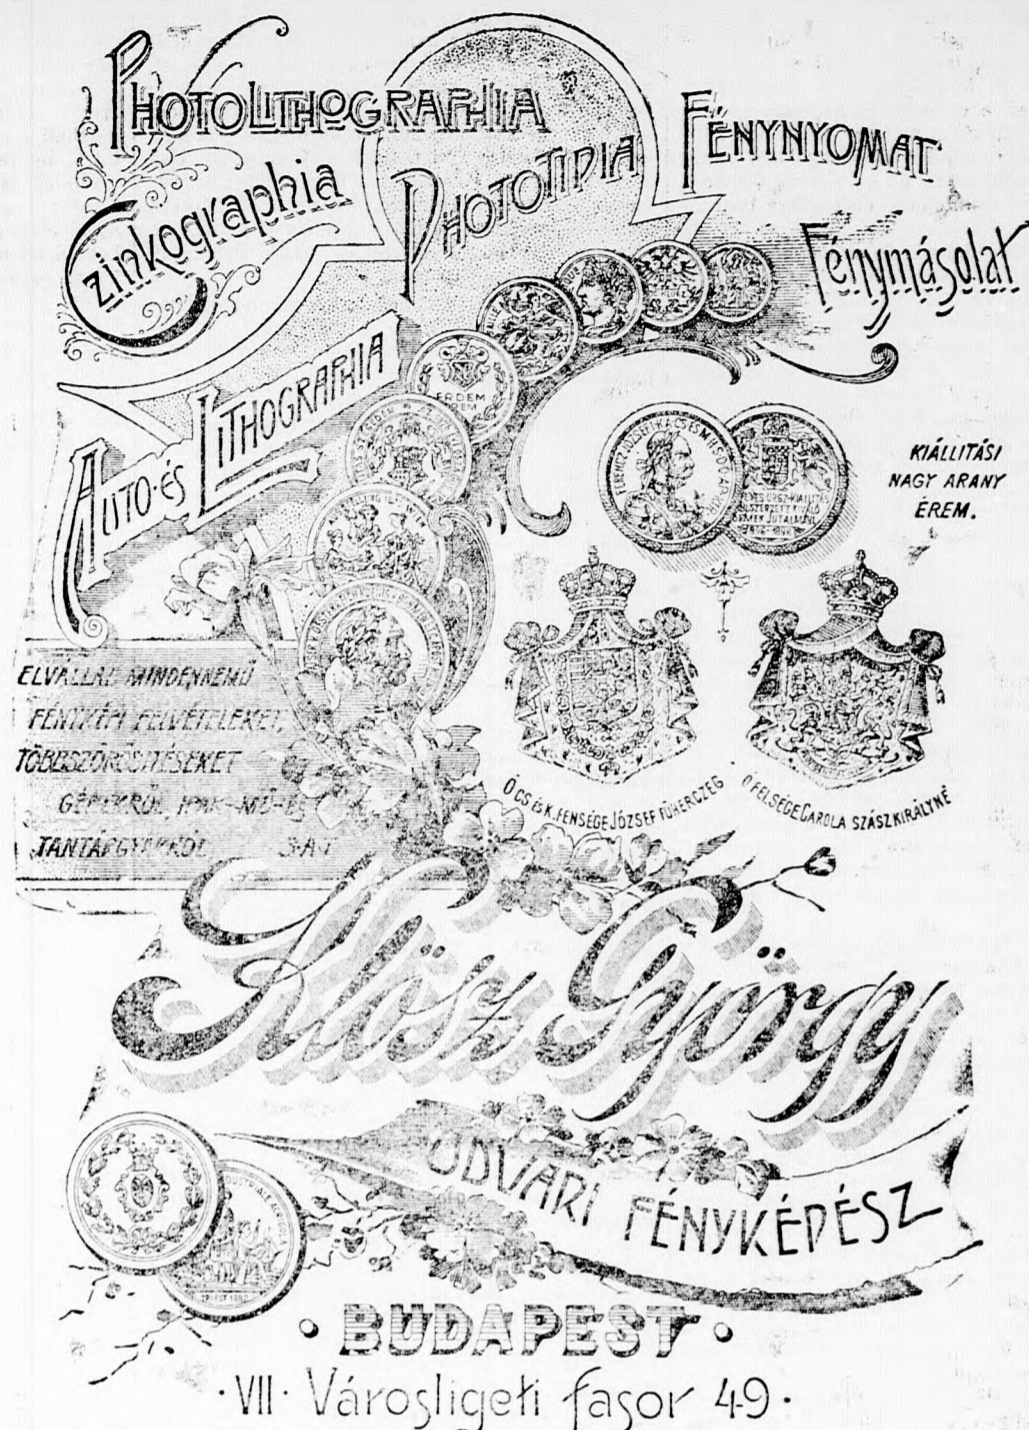 PHOTOLITHOGRAPHIA
Czinkographia
PHOTOTIPIA
FÉNYNYOMAT
Fénymásolat
AUTO-ÉS LITHOGRAPHIA
ÉRDEM
ÉREM
KIÁLLITÁSI
NAGY ARANY
ÉREM.
ELVÁLLAL MINDENNEMŰ
FÉNYKÉPI FELVÉTELEKET,
TÖBBSZÖRÖSITÉSEKET
GÉPEKRŐL IPAR-MŰ-ÉS
TANTÁRGYAKRÓL
Ő CS ÉS K. FENSÉGE JÓZSEF FŐHERCZEG
Ő FELSÉGE CAROLA SZÁSZ KIRÁLYNÉ
Klösz György
UDVARI FÉNYKÉPÉSZ
• BUDAPEST •
·VII· Városligeti fasor 49·